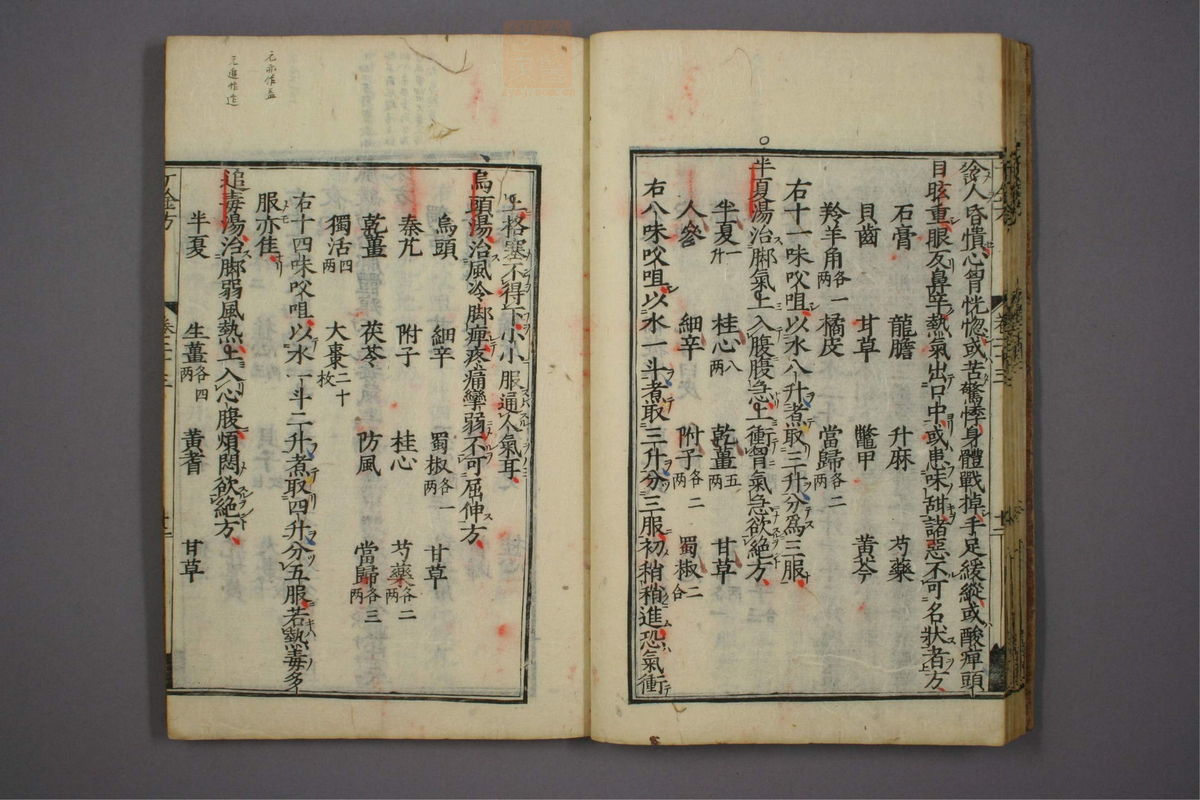 飮人昏憒心胷恍惚或苦驚悸身體戰掉手足緩縱或酸痹頭
目眩重眼反鼻辛熱氣出口中或患味甜諸惡不可名狀者方
石膏　龍膽　升麻　芍藥
貝齒　甘草　鼈甲　黃芩
羚羊角各一兩　橘皮　當歸各二兩
右十一味㕮咀以水八升煮取三升分為三服
半夏湯治脚氣上入腹腹急上衝胷氣急欲絕方
半夏一升　桂心八兩　乾薑五兩　甘草
人參　細辛　附子各二兩　蜀椒二合
右八味㕮咀以水一斗煮取三升分三服初稍稍進恐氣衝
上格塞不得下小小服通人氣耳
烏頭湯治風冷脚痹疼痛攣弱不可屈伸方
烏頭　細辛　蜀椒各一兩　甘草
秦艽　附子　桂心　芍藥各二兩
乾薑　茯苓　防風　當歸各三兩
獨活四兩　大棗二十枚
右十四味㕮咀以水一斗二升煮取四升分五服若熱毒多
服亦佳
追毒湯治脚弱風熱上入心腹煩悶欲絕方
半夏　生薑各四兩　黃耆　甘草
元亦作益
元進作造